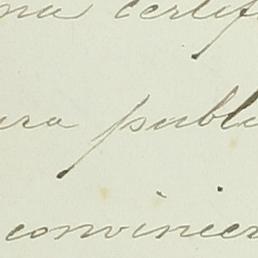 na certif
ra publi
convincer